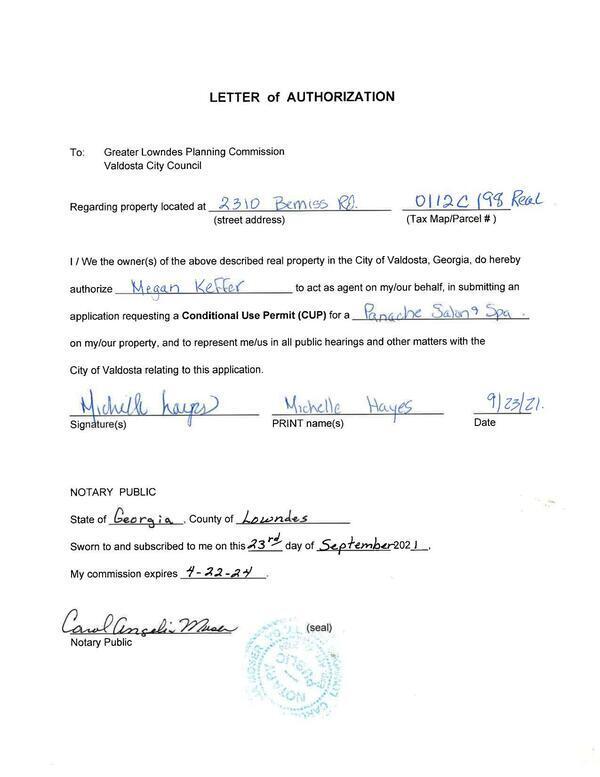 LETTER of AUTHORIZATION
To: Greater Lowndes Planning Commission
Valdosta City Council
Regarding property located at 2310 Bemiss Rd. 0112C 198 Real
(street address) (Tax Map/Parcel # )
I / We the owner(s) of the above described real property in the City of Valdosta, Georgia, do hereby
authorize Megan Keffer to act as agent on my/our behalf, in submitting an
application requesting a Conditional Use Permit (CUP) for a Panache Salon & Spa .
on my/our property, and to represent me/us in all public hearings and other matters with the
City of Valdosta relating to this application.
Michelle Hayes Michelle Hayes 9/23/21.
Signature(s) PRINT name(s) Date
NOTARY PUBLIC
State of Georgia, County of Lowndes
Sworn to and subscribed to me on this 23rd day of September 2021.
My commission expires 4-22-24.
Carol Angelia Muser
Notary Public (seal)
NOTARY
PUBLIC